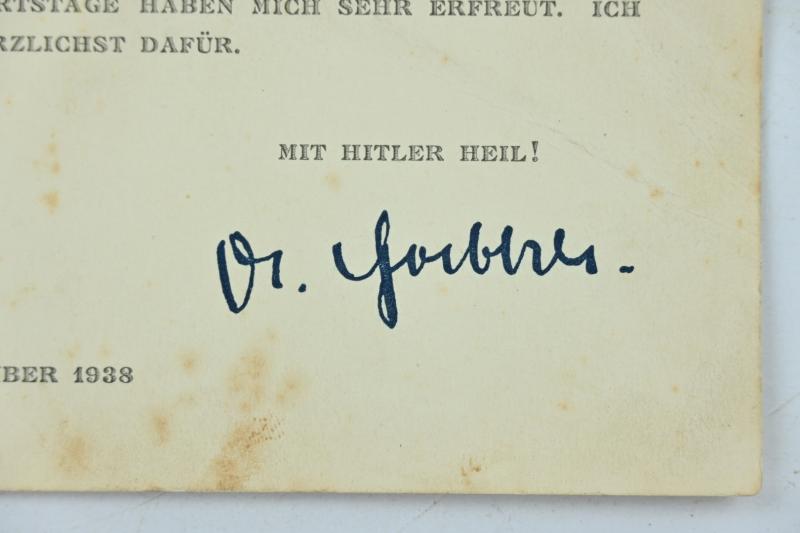 RTSTAGE HABEN MICH SEHR ERFREUT. ICH
RZLICHST DAFÜR.
MIT HITLER HEIL!
Dr. Goebbels.
MBER 1938